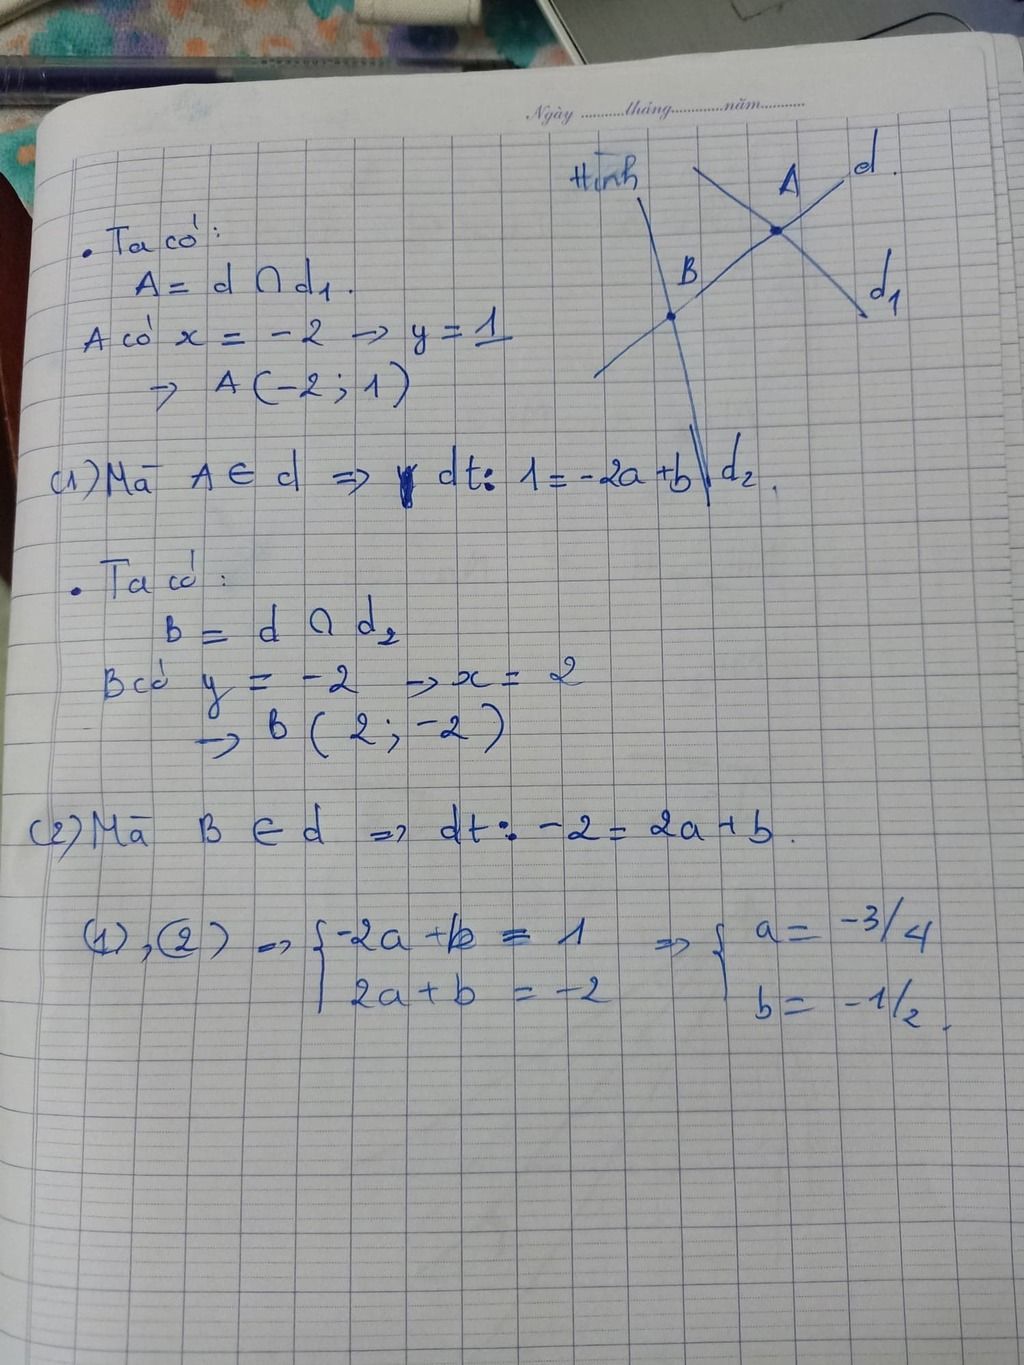 Ngày ...........tháng............năm..........
Hình
A
d.
B
d₁
• Ta có:
A = d ∩ d₁.
A có x = -2 → y = 1
→ A (-2; 1)
(1) Mà A ∈ d => dt: 1 = -2a + b
d₂.
• Ta có:
B = d ∩ d₂
B có y = -2 → x = 2
→ B (2; -2)
(2) Mà B ∈ d => dt: -2 = 2a + b.
(1), (2) => { -2a + b = 1 => { a = -3/4
2a + b = -2 b = -1/2.